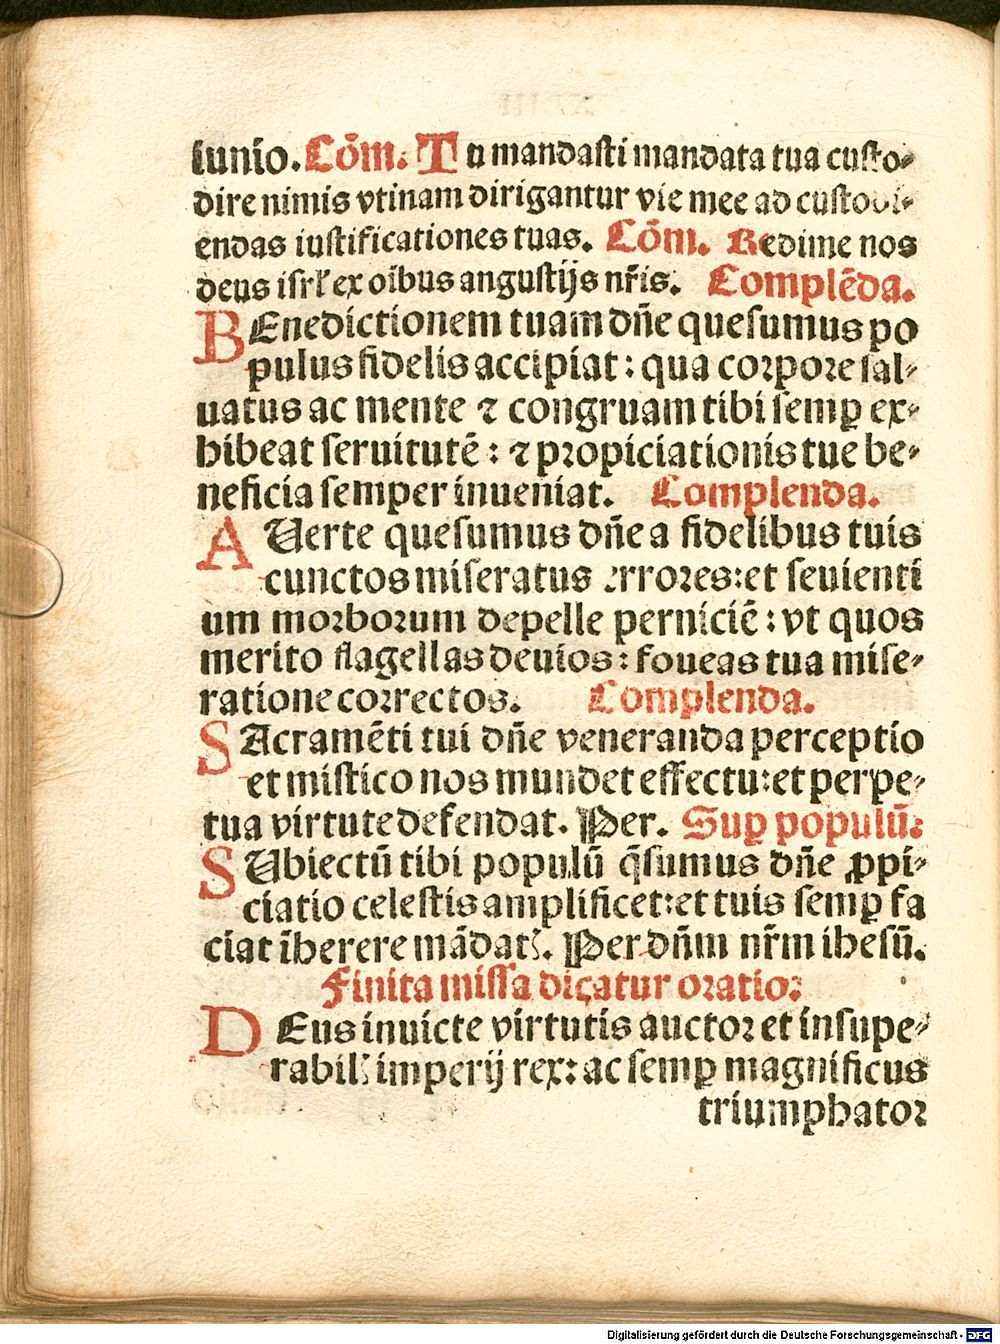 iunio. Cōm. Tu mandasti mandata tua custo⸗
dire nimis vtinam dirigantur vie mee ad custodi⸗
endas iustificationes tuas. Cōm. Redime nos
deus isrl' ex oībus angustijs nr̄is. Complēda.
BEnedictionem tuam dn̄e quesumus po
pulus fidelis accipiat: qua corpore sal⸗
uatus ac mente ⁊ congruam tibi semꝑ ex⸗
hibeat seruitutē: ⁊ propiciationis tue be⸗
neficia semper inueniat. Complenda.
AUerte quesumus dn̄e a fidelibus tuis
cunctos miseratus errores: et seuienti
um morborum depelle perniciē: vt quos
merito flagellas deuios: foueas tua mise⸗
ratione correctos. Complenda.
SAcramēti tui dn̄e veneranda perceptio
et mistico nos mundet effectu: et perpe⸗
tua virtute defendat. Per. Suꝑ populū.
SUbiectū tibi populū q̄sumus dn̄e ꝓpi⸗
ciatio celestis amplificet: et tuis semꝑ fa
ciat īherere mādatꝭ. Per dn̄m nr̄m ihesū.
Finita missa dicatur oratio:
DEus inuicte virtutis auctor et insupe⸗
rabilꝭ imperij rex: ac semꝑ magnificus
triumphator
Digitalisierung gefördert durch die Deutsche Forschungsgemeinschaft - DFG